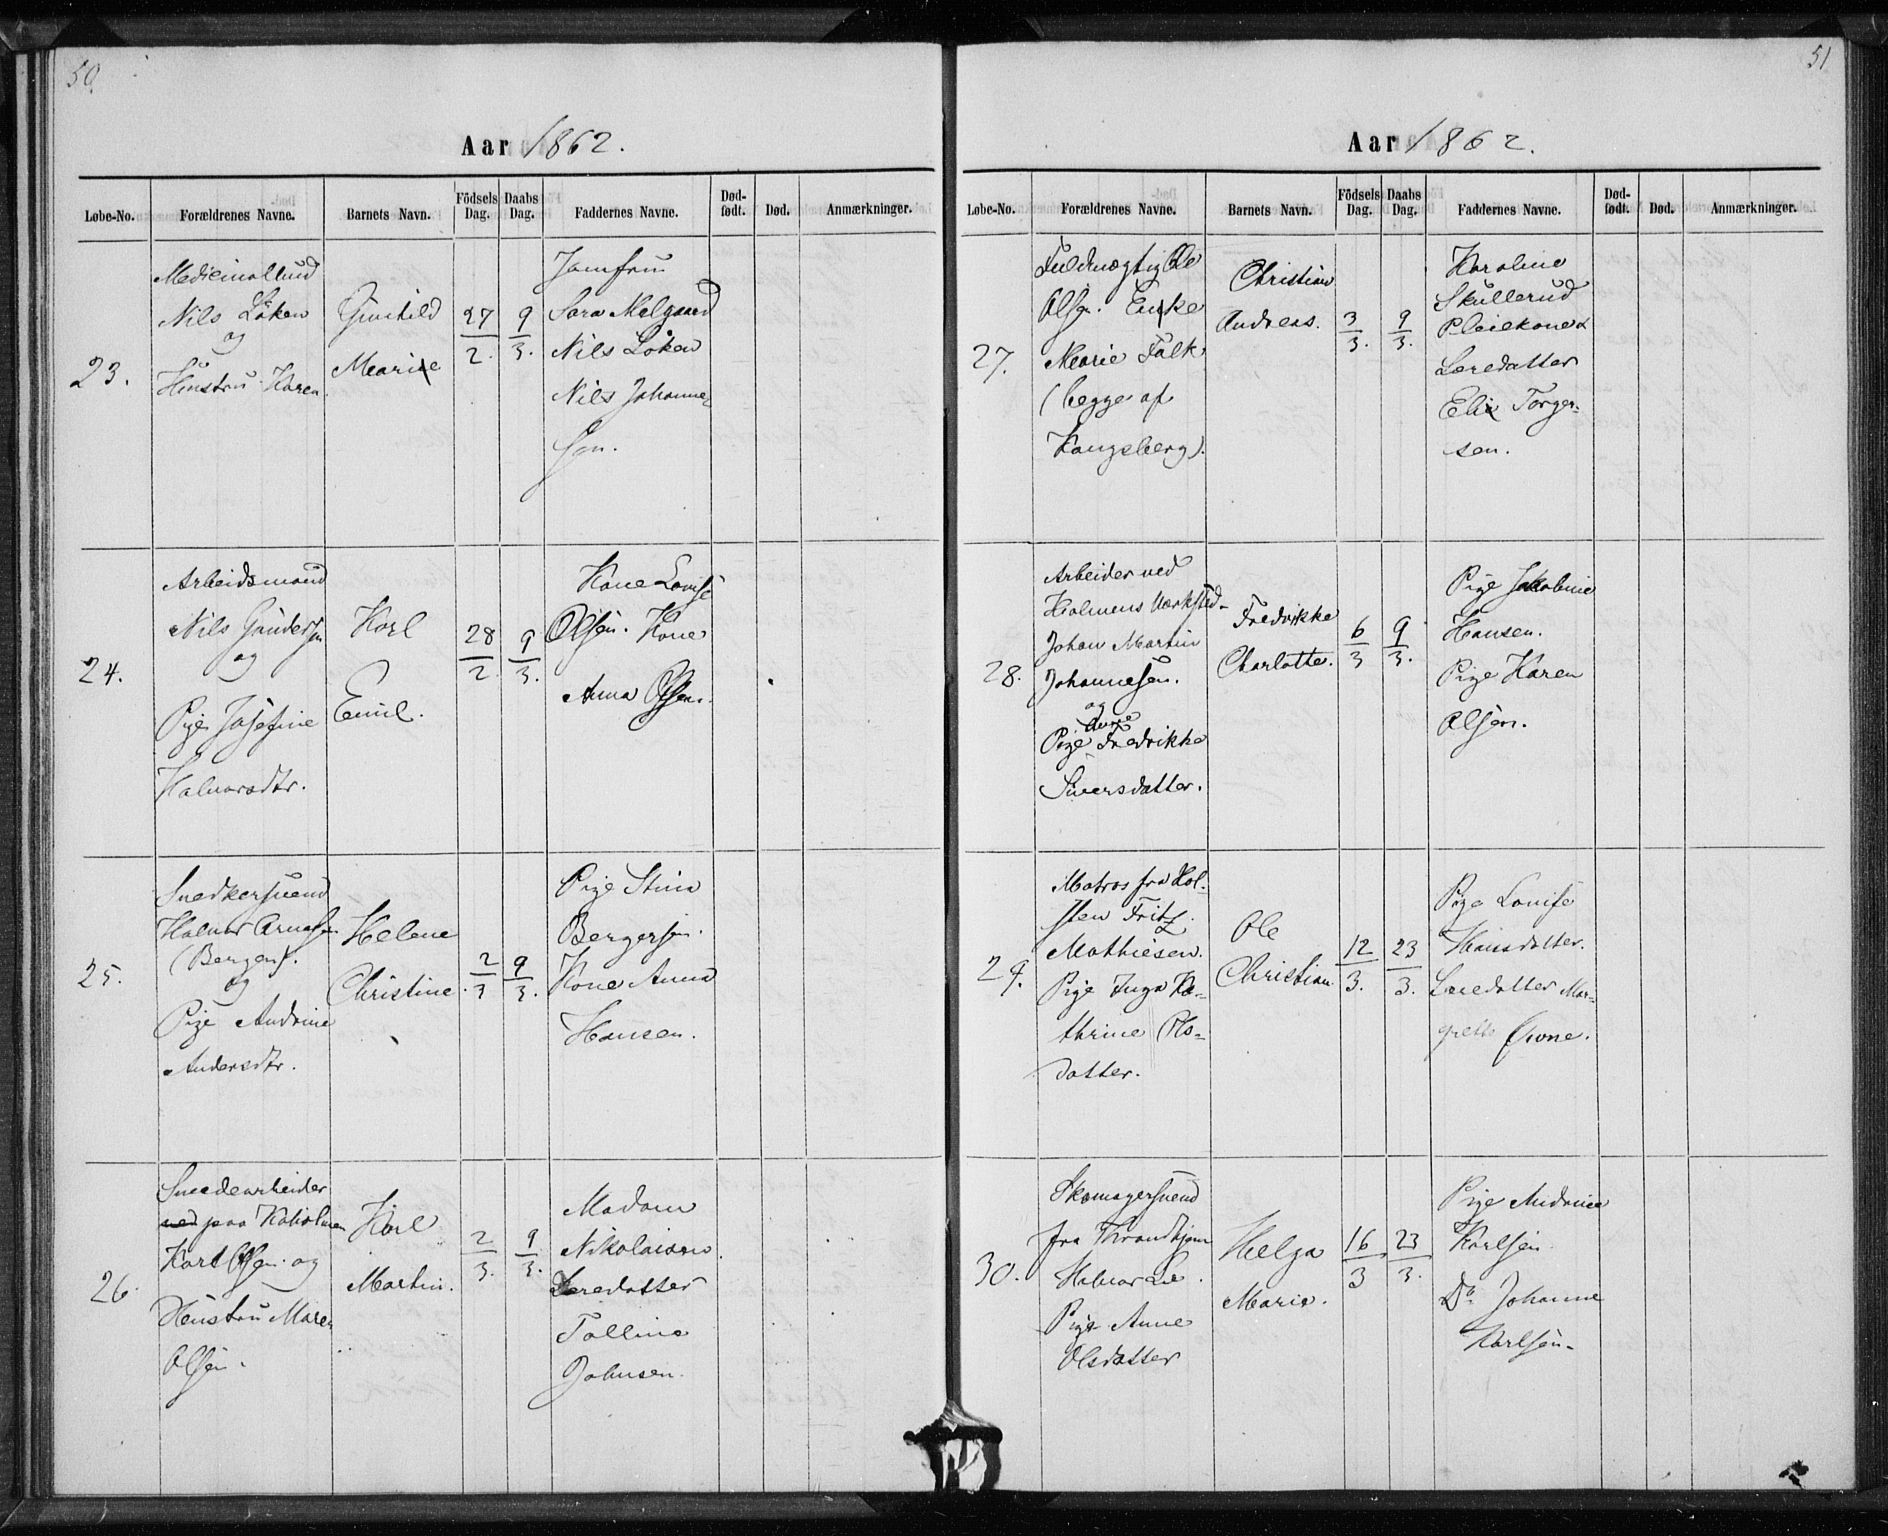 50.
Aar 1862.
Løbe-No. Forældrenes Navne. Barnets Navn. Födsels Dag. Daabs Dag. Faddernes Navne. Død-født. Død. Anmærkninger.
23.
Nils Löken
og
Hustru Karen
Gunhild
Marie
27/2.
9/3.
Jomfru
Sara Melgaard
Nils Löken
Nils Johanne-
sen.
24.
Arbeidsmand
Nils Gundersen
og
Pige Josefine
Halvorsdtr.
Karl
Emil.
28/2.
9/3.
Kone Lovise
Olsen. Kone
Anna Olsen.
25.
Snedkersvend
Halvor Arnesen
(Bergen).
og
Pige Andrine
Andersdtr.
Helene
Christine.
2/3
9/3.
Pige Stina
Bergersen.
Kone Anna
Hansen.
26.
Smedearbeider
ved paa Kaholmen
Karl Olsen og
Hustru Maren
Olsen.
Karl
Martin.
2/3.
9/3.
Madam
Nikolaisen
Læredatter
Talline
Johnsen.
51
Aar 1862.
Løbe-No. Forældrenes Navne. Barnets Navn. Födsels Dag. Daabs Dag. Faddernes Navne. Død-født. Død. Anmærkninger.
27.
Fuldmægtig Ole
Olsen. Enke
Marie Falk
(begge af
Kongsberg).
Christian
Andreas.
3/3.
9/3.
Karoline
Skullerud
Pleiekone
Læredatter
Elie Torger-
sen.
28.
Arbeider ved
Holmens Værksted
Johan Martin
Johannesen.
og
Anne
Pige Fredrikke
Siversdatter.
Fredrikke
Charlotte.
6/3
9/3.
Pige Jakobine
Hansen.
Pige Karen
Olsen.
29.
Matros fra Hol-
sten Fritz
Mathiesen.
Pige Inga Ka-
thrine Ols-
datter.
Ole
Christian
12/3.
23/3.
Pige Lovise
Hansdatter.
Læredatter Mar-
grethe
30.
Skomagersvend
fra Throndhjem
Halvor Lie.
Pige Anne
Olsdatter
Helga
Marie.
16/3
23/3.
Pige Andrine
Karlsen.
Do Johanne
Karlsen.